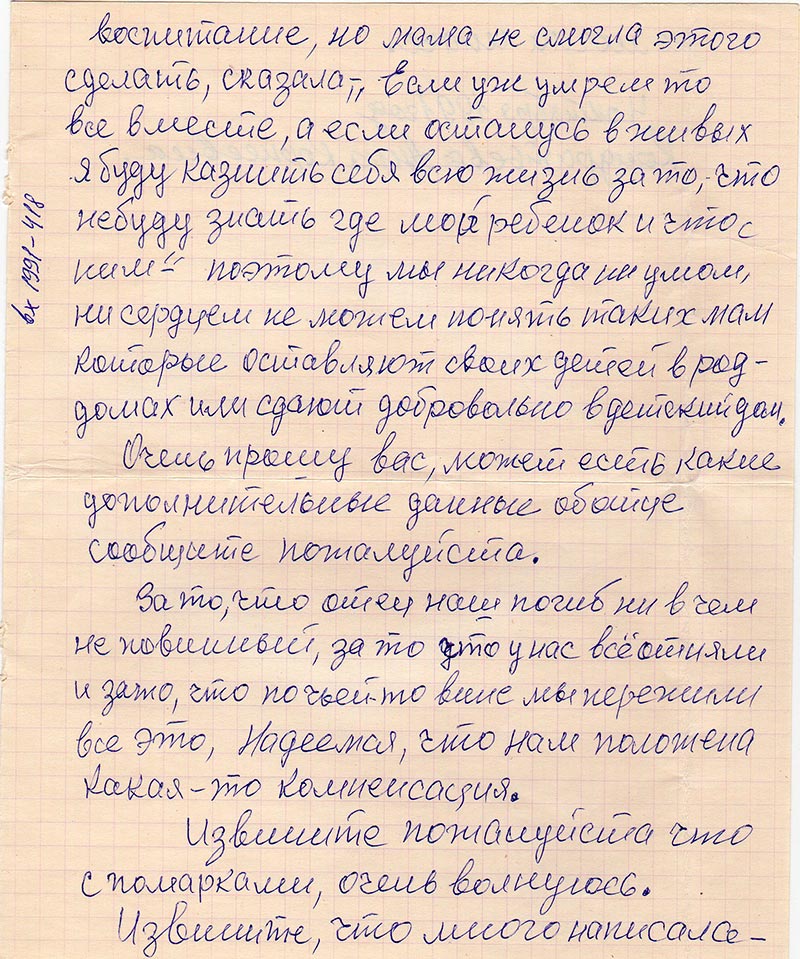 воспитание, но мама не смогла этого
сделать, сказала –„ Если уж умрем то
все вместе, а если останусь в живых
я буду казнить себя всю жизнь за то, что
небуду знать где мой ребенок и что с
ним –" поэтому мы никогда ни умом,
ни сердцем не можем понять таких мам
которые оставляют своих детей в род-
домах или сдают добровольно в детский дом.
Очень прошу вас, может есть какие
дополнительные данные об отце
сообщите пожалуйста.
За то, что отец наш погиб ни в чем
не повинный, за то что у нас всё отняли
и за то, что по чьей-то вине мы пережили
все это, Надеемся, что нам положена
какая-то компенсация.
Извините пожалуйста что
с помарками, очень волнуюсь.
Извините, что много написала –
вх 1991-418